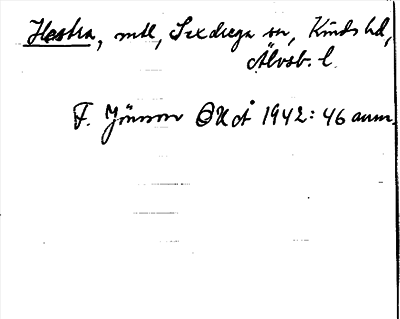 Hestra, mtl, Sexdrega sn, Kinds hd,
Älvsb. l.
F. Jönsson OUÅ 1942: 46 anm.